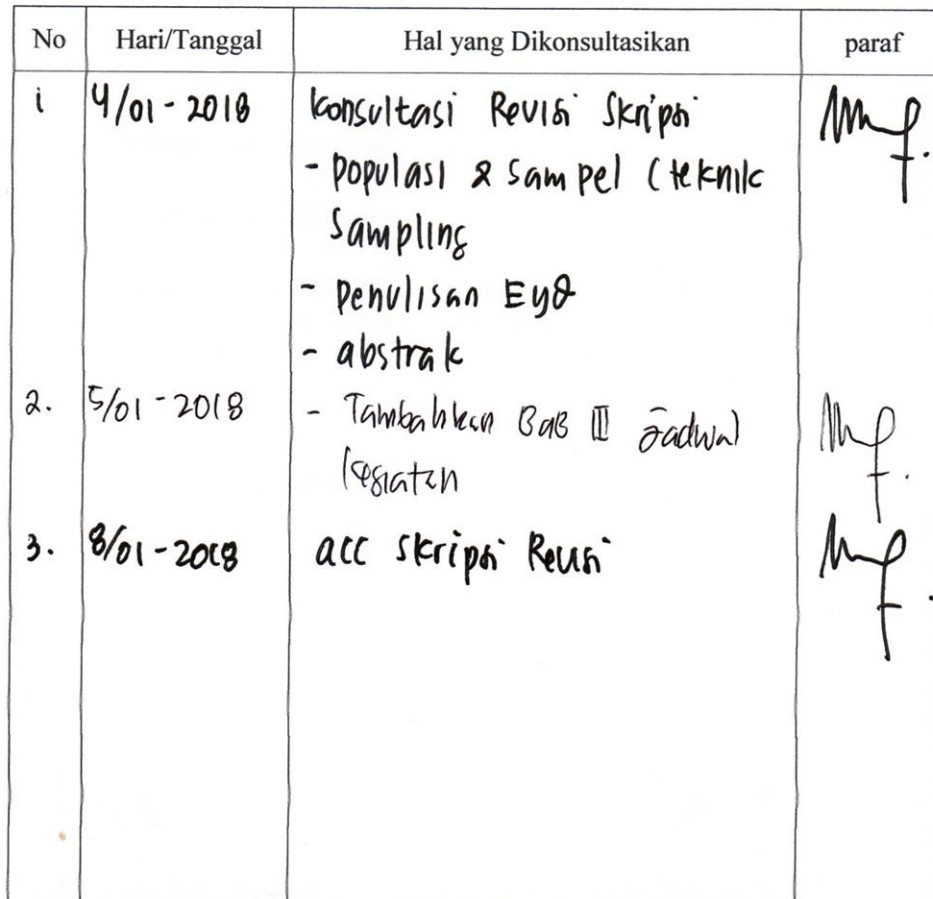 No Hari/Tanggal Hal yang Dikonsultasikan paraf
1 4/01-2018 Konsultasi Revisi Skripsi
- Populasi & Sampel (teknik
Sampling
- Penulisan EyD
- abstrak
2. 5/01-2018 - Tambahkan BaB III Jadwal
kegiatan
3. 8/01-2018 acc skripsi Revisi